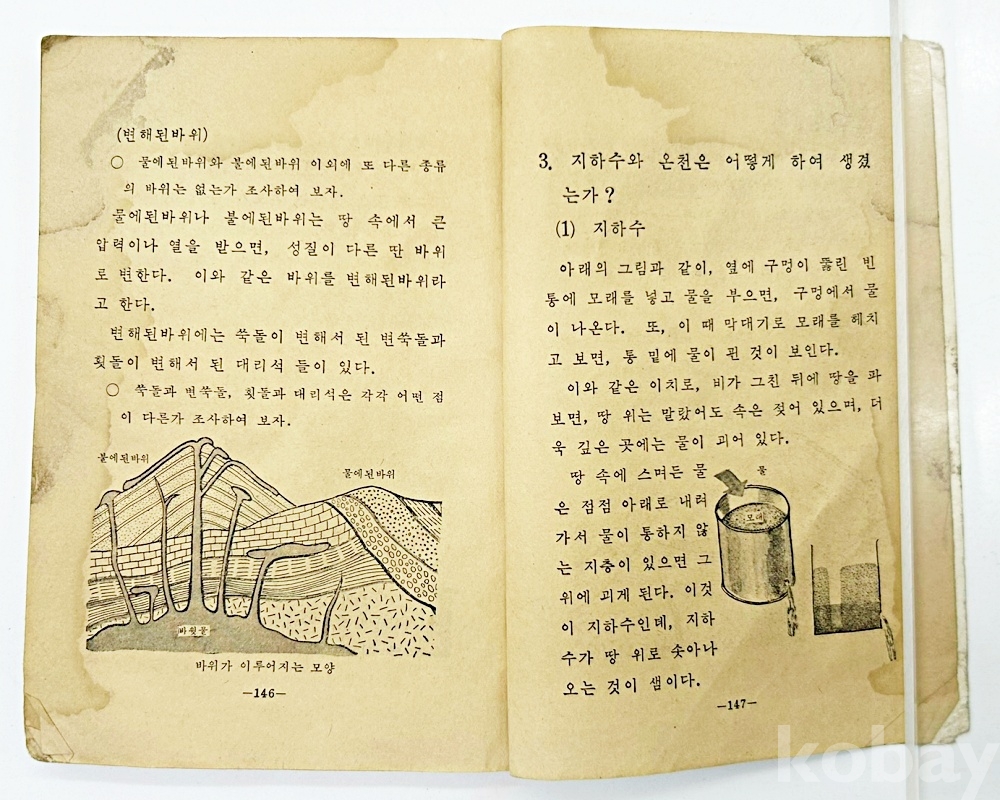 (변해된바위)
○ 물에된바위와 불에된바위 이외에 또 다른 종류
의 바위는 없는가 조사하여 보자.
물에된바위나 불에된바위는 땅 속에서 큰
압력이나 열을 받으면, 성질이 다른 딴 바위
로 변한다. 이와 같은 바위를 변해된바위라
고 한다.
변해된바위에는 쑥돌이 변해서 된 변쑥돌과
횟돌이 변해서 된 대리석 들이 있다.
○ 쑥돌과 변쑥돌, 횟돌과 대리석은 각각 어떤 점
이 다른가 조사하여 보자.
불에된바위
물에된바위
바윗물
바위가 이루어지는 모양
—146—
3. 지하수와 온천은 어떻게 하여 생겼
는가?
(1) 지하수
아래의 그림과 같이, 옆에 구멍이 뚫린 빈
통에 모래를 넣고 물을 부으면, 구멍에서 물
이 나온다. 또, 이 때 막대기로 모래를 헤치
고 보면, 통 밑에 물이 괸 것이 보인다.
이와 같은 이치로, 비가 그친 뒤에 땅을 파
보면, 땅 위는 말랐어도 속은 젖어 있으며, 더
욱 깊은 곳에는 물이 괴어 있다.
땅 속에 스며든 물
은 점점 아래로 내려
가서 물이 통하지 않
는 지층이 있으면 그
위에 괴게 된다. 이것
이 지하수인데, 지하
수가 땅 위로 솟아나
오는 것이 샘이다.
물
모래
—147—
kobay